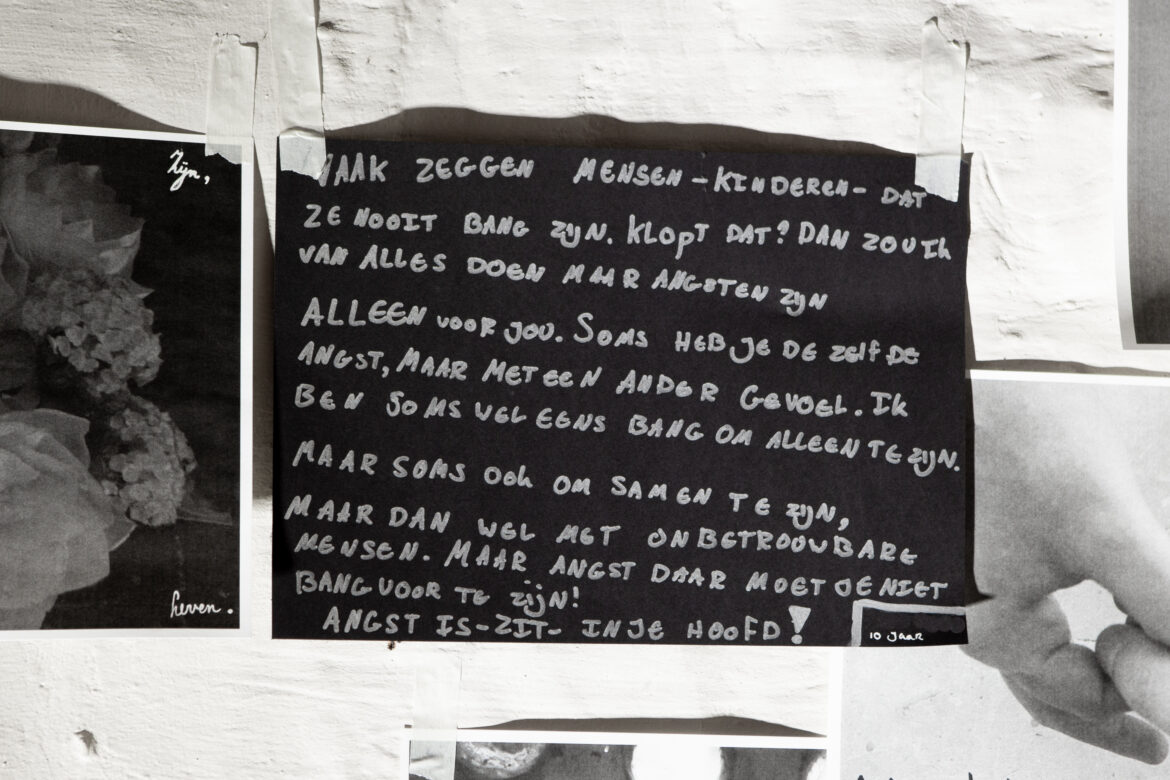 Zijn,
leven.
VAAK ZEGGEN MENSEN - KINDEREN - DAT
ZE NOOIT BANG ZIJN. KLOPT DAT? DAN ZOU IK
VAN ALLES DOEN MAAR ANGSTEN ZIJN
ALLEEN VOOR JOU. SOMS HEB JE DE ZELFDE
ANGST, MAAR MET EEN ANDER GEVOEL. IK
BEN SOMS WEL EENS BANG OM ALLEEN TE ZIJN.
MAAR SOMS OOK OM SAMEN TE ZIJN,
MAAR DAN WEL MET ONBETROUWBARE
MENSEN. MAAR ANGST DAAR MOET JE NIET
BANG VOOR TE ZIJN!
ANGST IS-ZIT- IN JE HOOFD!
10 Jaar